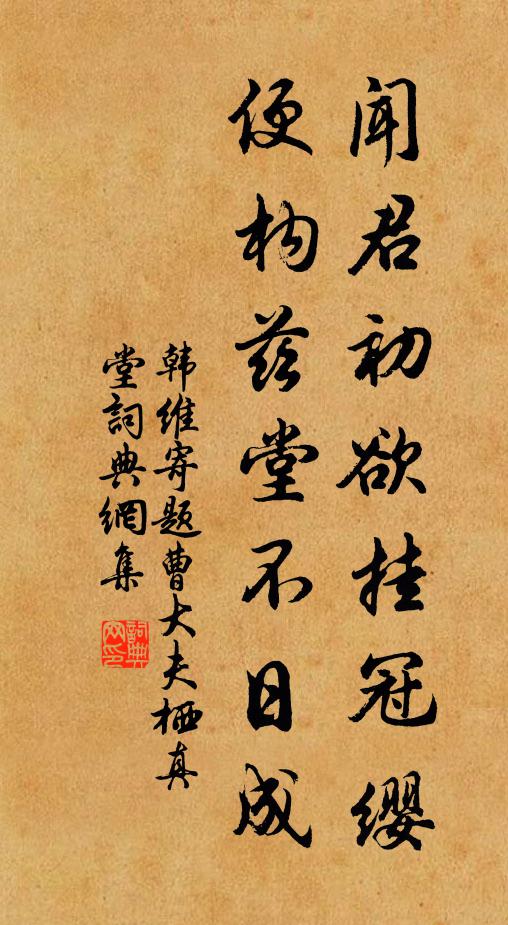 闻君初欲挂冠缨
便构兹堂不日成
韩维寄题曹大夫栖真
堂词典網集
詞典網印